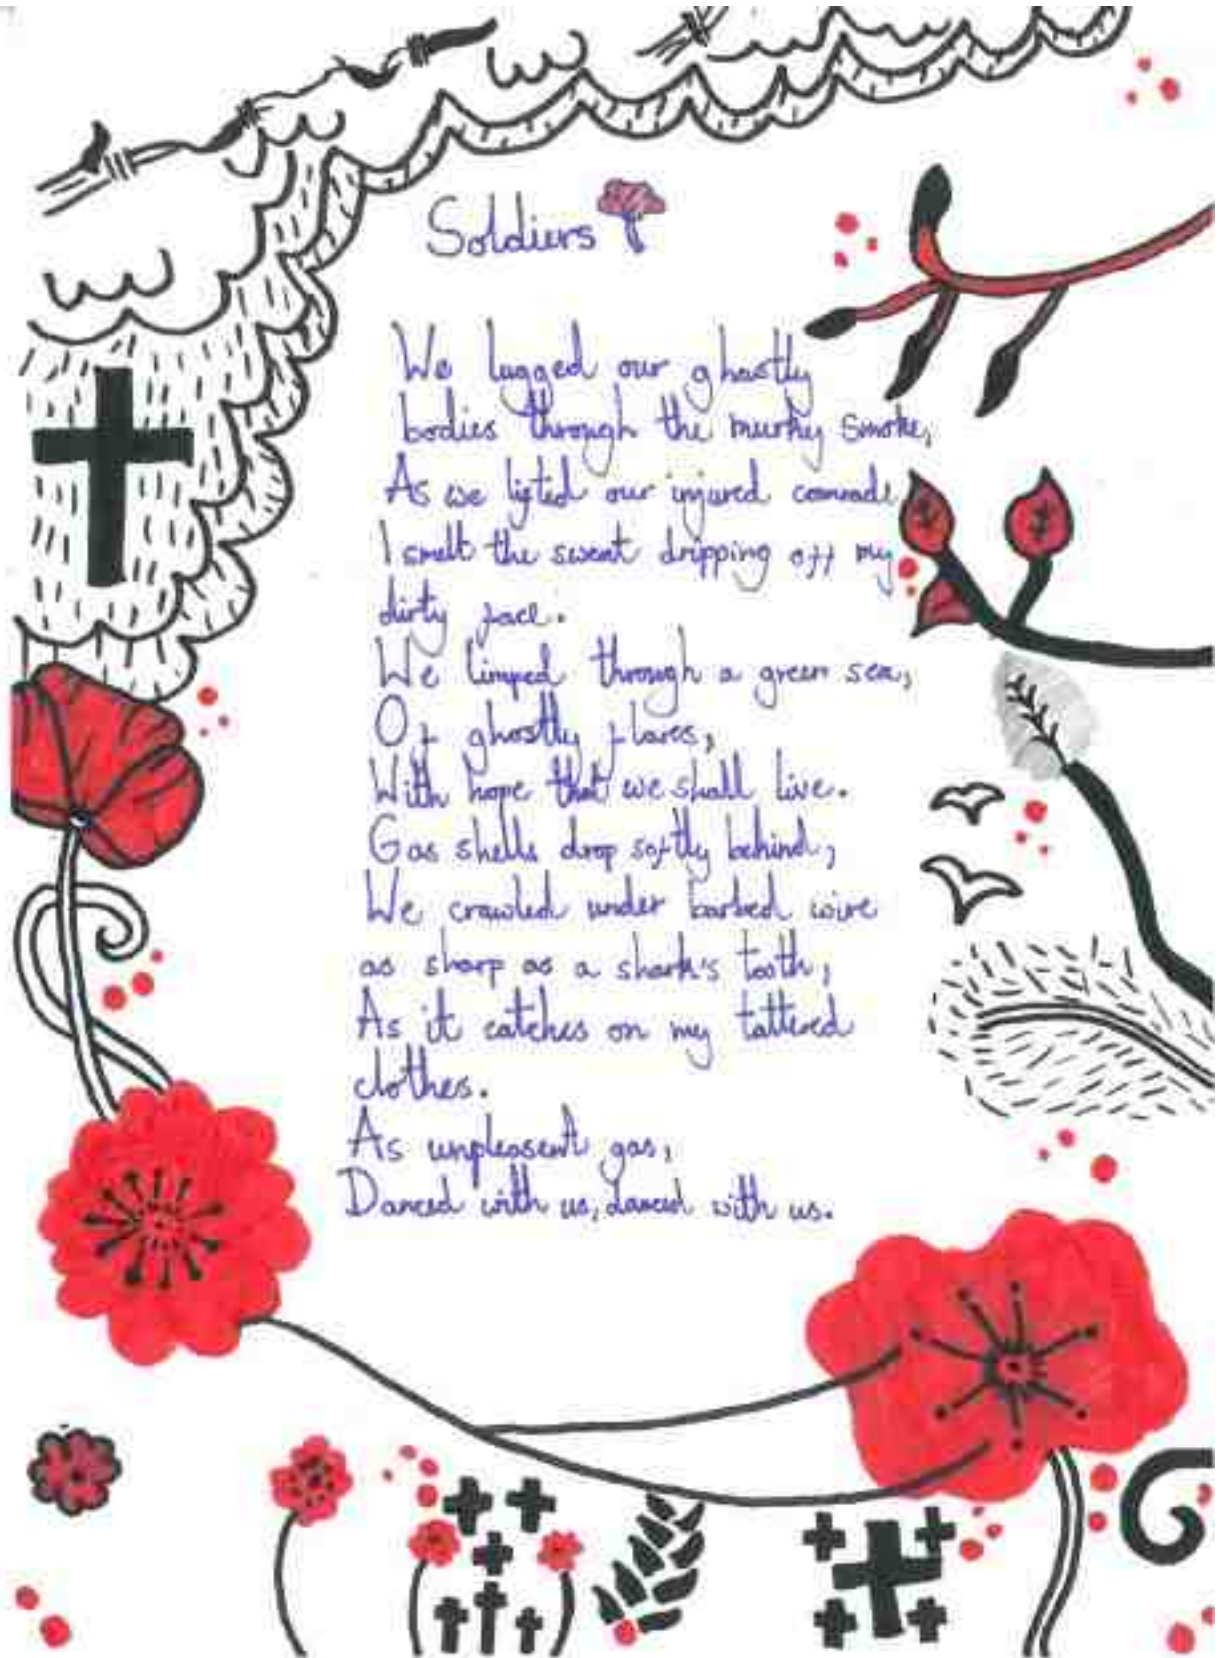 Soldiers
We lugged our ghastly
bodies through the murky smoke,
As we lifted our injured comrade
I smelt the sweat dripping off my
dirty face.
We limped through a green sea,
Of ghostly flares,
With hope that we shall live.
Gas shells drop softly behind,
We crawled under barbed wire
as sharp as a shark's tooth,
As it catches on my tattered
clothes.
As unpleasent gas,
Danced with us, danced with us.